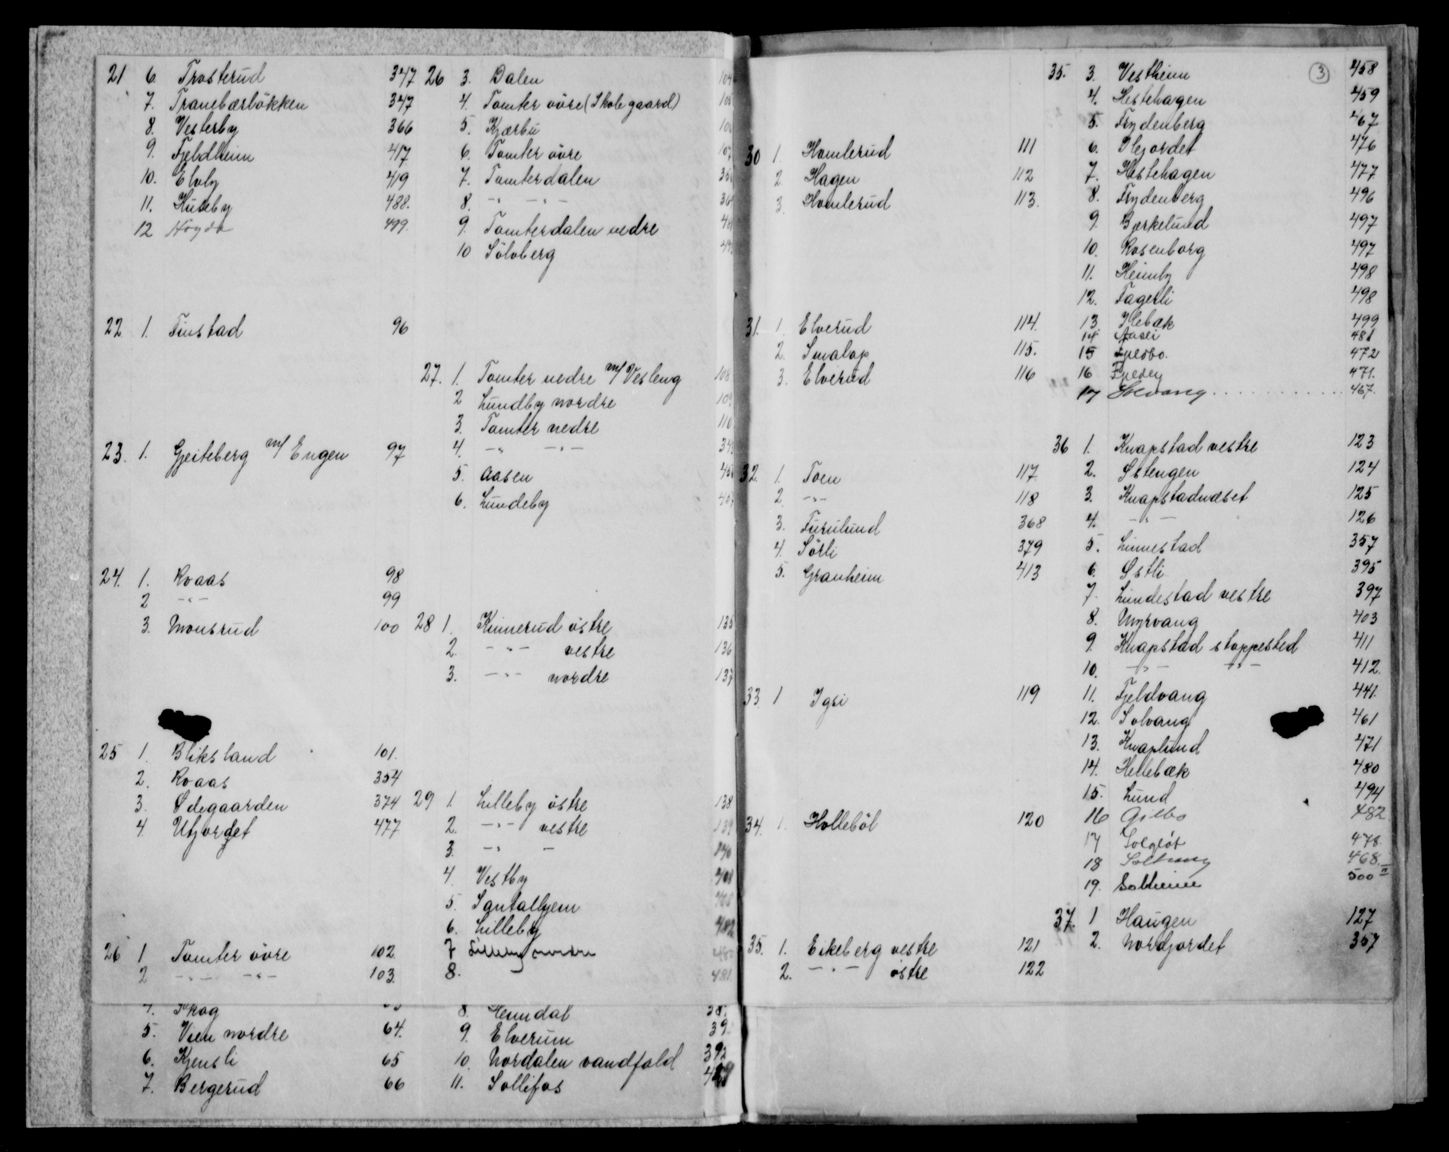 21 6. Trosterud 347
7. Tranebærløkken 347
8. Vesterby 366
9. Fjeldheim 417
10. Elvby 419
11. Huseby 488.
12 Høgda 499.
22 1. Finstad 96
23. 1. Gjeiteberg m/ Engen 97
24. 1. Roaas 98
2 -"- 99
3. Monsrud 100
25 1. Bliksland 101.
2. Roaas 354
3. Ødegaarden 374
4. Utjordet 477
26 1 Tomter øvre 102.
2 -"- -"- 103.
4. Skog
5. Veen nordre 64.
6. Kjensli 65
7. Bergerud 66
26 3. Dalen 104
4. Tomter øvre (Skolegaard) 105
5. Kjærbu 106
6. Tomter øvre 107
7. Tomterdalen
8. -"- -"-
9. Tomterdalen nedre
10 Sölvberg
27. 1. Tomter nedre m/ Vesleng 108
2 Lundby nordre 109
3. Tomter nedre 110
4. -"- -"-
5. Aasen
6. Lundeby
28 1. Kinnerud østre 135
2. -"- vestre 136
3. -"- nordre 137
29 1. Lilleby östre 138
2. -"- vestre 139
3. -"- - 140
4. Vestby
5. Santalhjem
6. Lilleby 482
7 Lilleby
8.
8. Heimdal
9. Elverum
10. Nordalen vandfald 392
11. Sollifos
3
30 1. Homlerud 111
2. Hagen 112
3. Homlerud 113.
31. 1. Elverud 114.
2. Smalap 115.
3. Elverud 116
32. 1. Toen 117
2. -"- 118
3. Furulund 368
4. Sörli 379
5. Granheim 413
33. 1 Igsi 119
34. 1. Holleböl 120
35. 1. Eikeberg vestre 121
2. -"- østre 122
35. 3. Vestheim 458
4. Hestehagen 459
5. Frydenberg 467
6. Ilejordet 476
7. Hestehagen 477
8. Frydenberg 496
9. Bjerkelund 497
10. Rosenborg 497
11. Heimby 498
12. Fagerli 498
13. Ilebæk 499
14 Aasli 481
15 472
16 471.
17 467.
36 1. Knapstad vestre 123
2. Østengen 124
3. Knapstadnæset 125
4. -"- 126
5. Linnestad 357
6. Østli 395
7. Lundestad vestre 397
8. Myrvang 403
9. Knapstad stoppested 411
10. -"- -"- 412.
11. Fjeldvang 441.
12. Solvang 461
13. Knaplund 471
14. Hellebæk 480
15. Lund 494
16 482
17 478.
18 468.
19. Solheim 500 II
37. 1 Haugen 127
2. Nordjordet 357